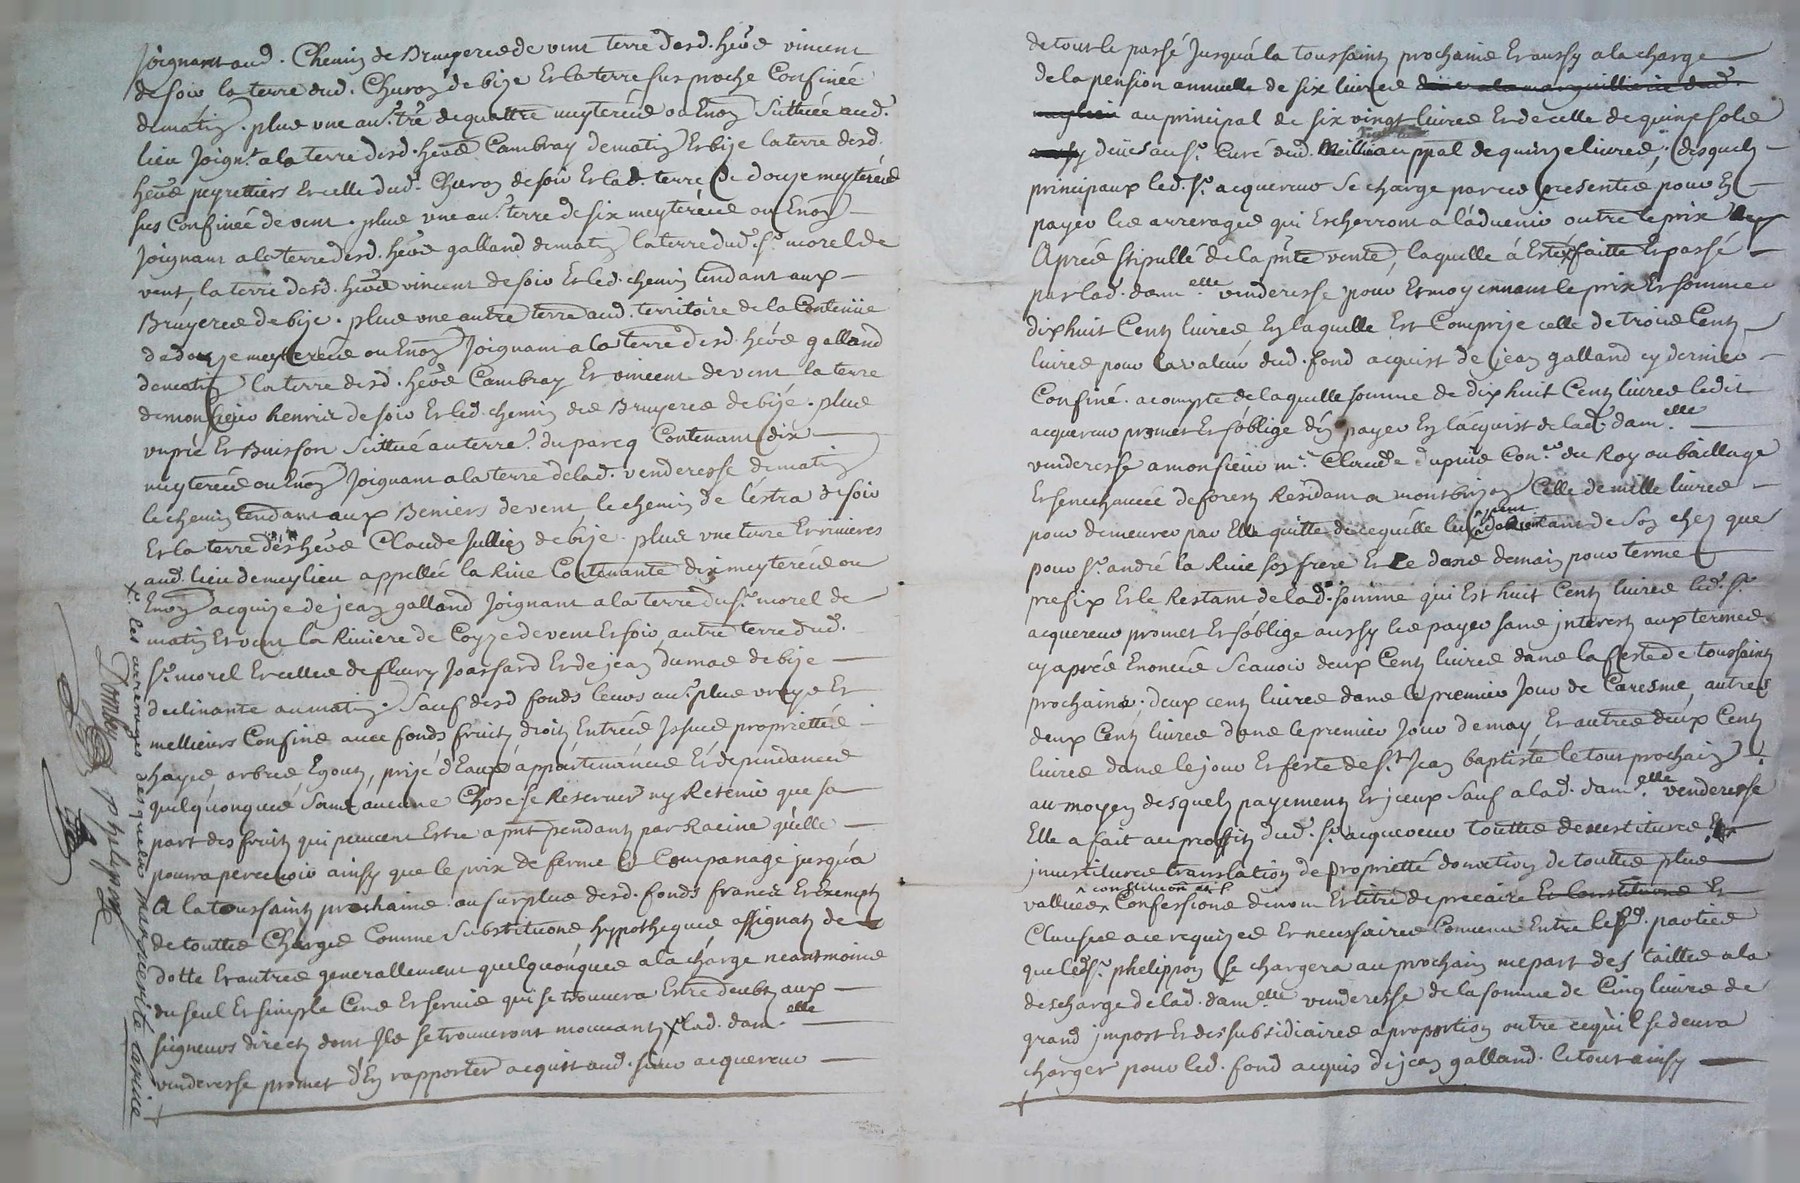 Joignant aud. Chemin de Bruyeres de vent terre desd. heors vincent
de soir la terre dud. Churon de bize Et la terre sus proche Confinée
de matin. plus une au.tre tre. de quattre meyterées ou Enon Scittuée aud.
lieu Joign.t a la terre desd. heors Cambray de matin Et bize la terre desd.
heors peyrettiers Et celle dud. Churon de soir Et lad. terre de douze meyterées
sus Confinée de vent. plus une au. terre de six meyterées ou Enon
Joignant a la terre desd. heors galland de matin la terre dud. Sr. morel de
vent, la terre desd. heors vincent de soir Et led. chemin tendant aux
Bruyeres de bize. plus une autre terre aud. territoire de la Contenüe
de douze meyterées ou Enon Joignant a la terre desd. heors galland
de matin la terre desd. heors Cambray Et vincent de vent la terre
de monsieur henris de soir Et led. chemin des Bruyeres de bize. plus
un pré Et Buisson Scittué au terre. du parcq Contenant dix
meyterées ou Enon Joignant a la terre de lad. venderesse de matin
le chemin tendant aux Beniers de vent le chemin de l'estra de soir
Et la terre des heors Claude Jullien de bize. plus une terre Et rivieres
aud. lieu de meylieu appellée la Rive Contenante dix meyterées ou
Enon acquize de jean galland Joignant a la terre du Sr. morel de
matin Et vent la Riviere de Coyze de vent Et soir, autre terre dud.
Sr. morel Et celles de fleury Joassard Et de jean dumas de bize
declinante au matin. Sauf desd. fonds leurs au. plus vrays Et
mellieurs Confins avec fonds fruits droits Entrées Issues proprietées
hayes arbres Egouts, prise d'Eaux appartenances Et dependances
quelquonques sans aucune Chose se Reserver ny Retenir que sa
part des fruits qui peuvent Estre a pnt. pendants par Racine qu'elle
pourra percevoir ainsy que le prix de ferme Et Companage jusqu'a
A la toussaint prochaine. au surplus desd. fonds francs Et Exempts
de touttes Charges Comme Substitutions hypotheques assignats de
dotte Et autres generallement quelquonques a la charge neantmoins
du seul Et simple Cens Et servis qui se trouvera Estre deubt aux
seigneurs directs dont Ils se trouveront mouvants x lad. dam.elle
venderesse promet d'En rapporter acquit aud. sieur acquereur
x les arrerages desquels servis lad.
de tout le passé Jusqu'a la toussaint prochaine Et aussy a la charge
de la pension annuelle de six livres düe a la marguillerie dud.
meylieu au principal de six vingt livres Et de celle de quinze sols
aussy deües au Sr. Curé dud. Meillieu au ppal de quinze livres, desquels
principaux led. Sr. acquereur se charge par ces presentes pour En
payer les arrerages qui Escherront a l'advenir outre le prix
Apres stipullé de la pnte vente, laquelle a Esté faitte Et passé
par lad. dam.elle venderesse pour Et moyennant le prix Et somme
dixhuit Cents livres En laquelle Est Comprise celle de trois Cents
livres pour la valeur dud. fond acquist de jean galland cy dernier
Confiné. a compte de laquelle somme de dixhuit Cents livres ledit
acquereur promet Et s'oblige d'En payer En l'acquist de lad. dam.elle
venderesse a monsieur mr. Claude dupuis Con.er du Roy au baillage
Et senechaucée de forest Residant a montbrison Celle de mille livres
pour demeurer par Elle quitte de ce qu'elle luy doit Restant de Son chef que
pour Sr. andré la Rive son frere Et Ce dans demain pour terme
prefix Et le Restant de lad. somme qui Est huit Cents livres led. Sr.
acquereur promet Et s'oblige aussy les payer sans interest aux termes
cy aprés Enoncés Scavoir deux Cents livres dans la feste de toussaints
prochaine. deux cents livres dans le premier Jour de Caresme, autres
deux Cents livres dans le premier Jour de may, Et autres deux Cents
livres dans le jour Et feste de St. Jean baptiste le tout prochain
au moyen desquels payements Et jceux sauf a lad. dam.elle venderesse
Elle a fait au proffit dud. Sr. acquereur touttes devestitures
jnvestitures translation de proprietté donnation de touttes plus
vallües x Confessions de nom Et titre de precaire Et Constitutions Et
^ constitution
Clauses a ce requizes Et necessaires Convenu Entre lesd. parties
que led. Sr. phelippon se chargera au prochain mepart des tailles a la
descharge de lad. dam.elle venderesse de la somme de Cinq livres de
grand jmpost Et des subsidiaires a proportion outre ce qu'il se devra
charger pour led. fond acquis de jean galland. le tout ainsy